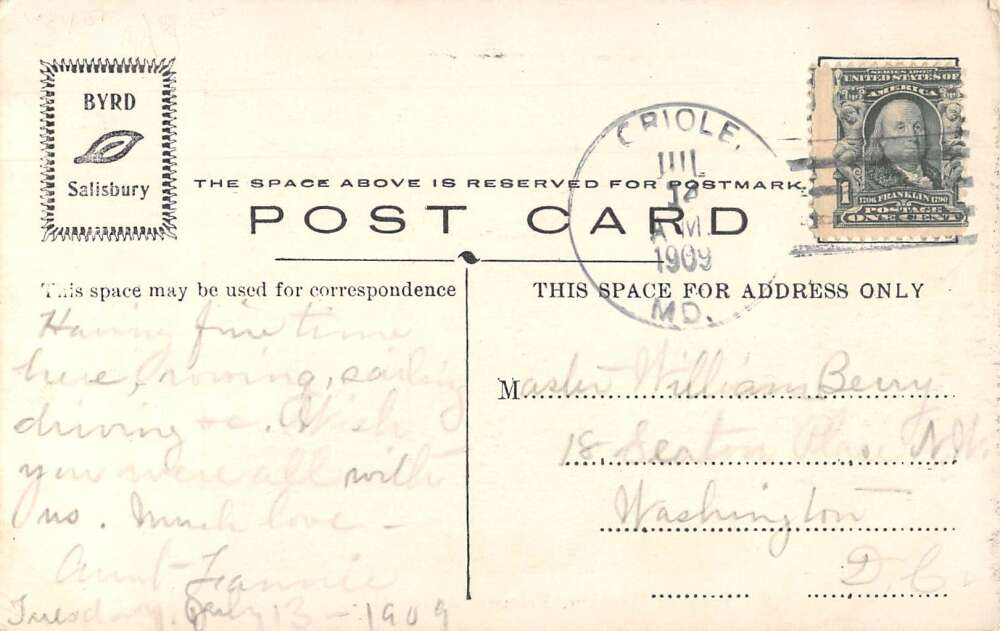 BYRD
Salisbury
SERIES 1902
UNITED STATES OF
AMERICA
1
1706 FRANKLIN 1790
POSTAGE
ONE CENT
ORIOLE,
JUL
A.M.
1909
MD.
THE SPACE ABOVE IS RESERVED FOR POSTMARK
POST CARD
This space may be used for correspondence
THIS SPACE FOR ADDRESS ONLY
Having fine time
here, rowing, sailing
driving &c. Wish
you were all with
us. Much love –
Aunt Fannie
Tuesday, July 13 – 1909
Master William Berry
18 Seaton Place N.W.
Washington
D.C.